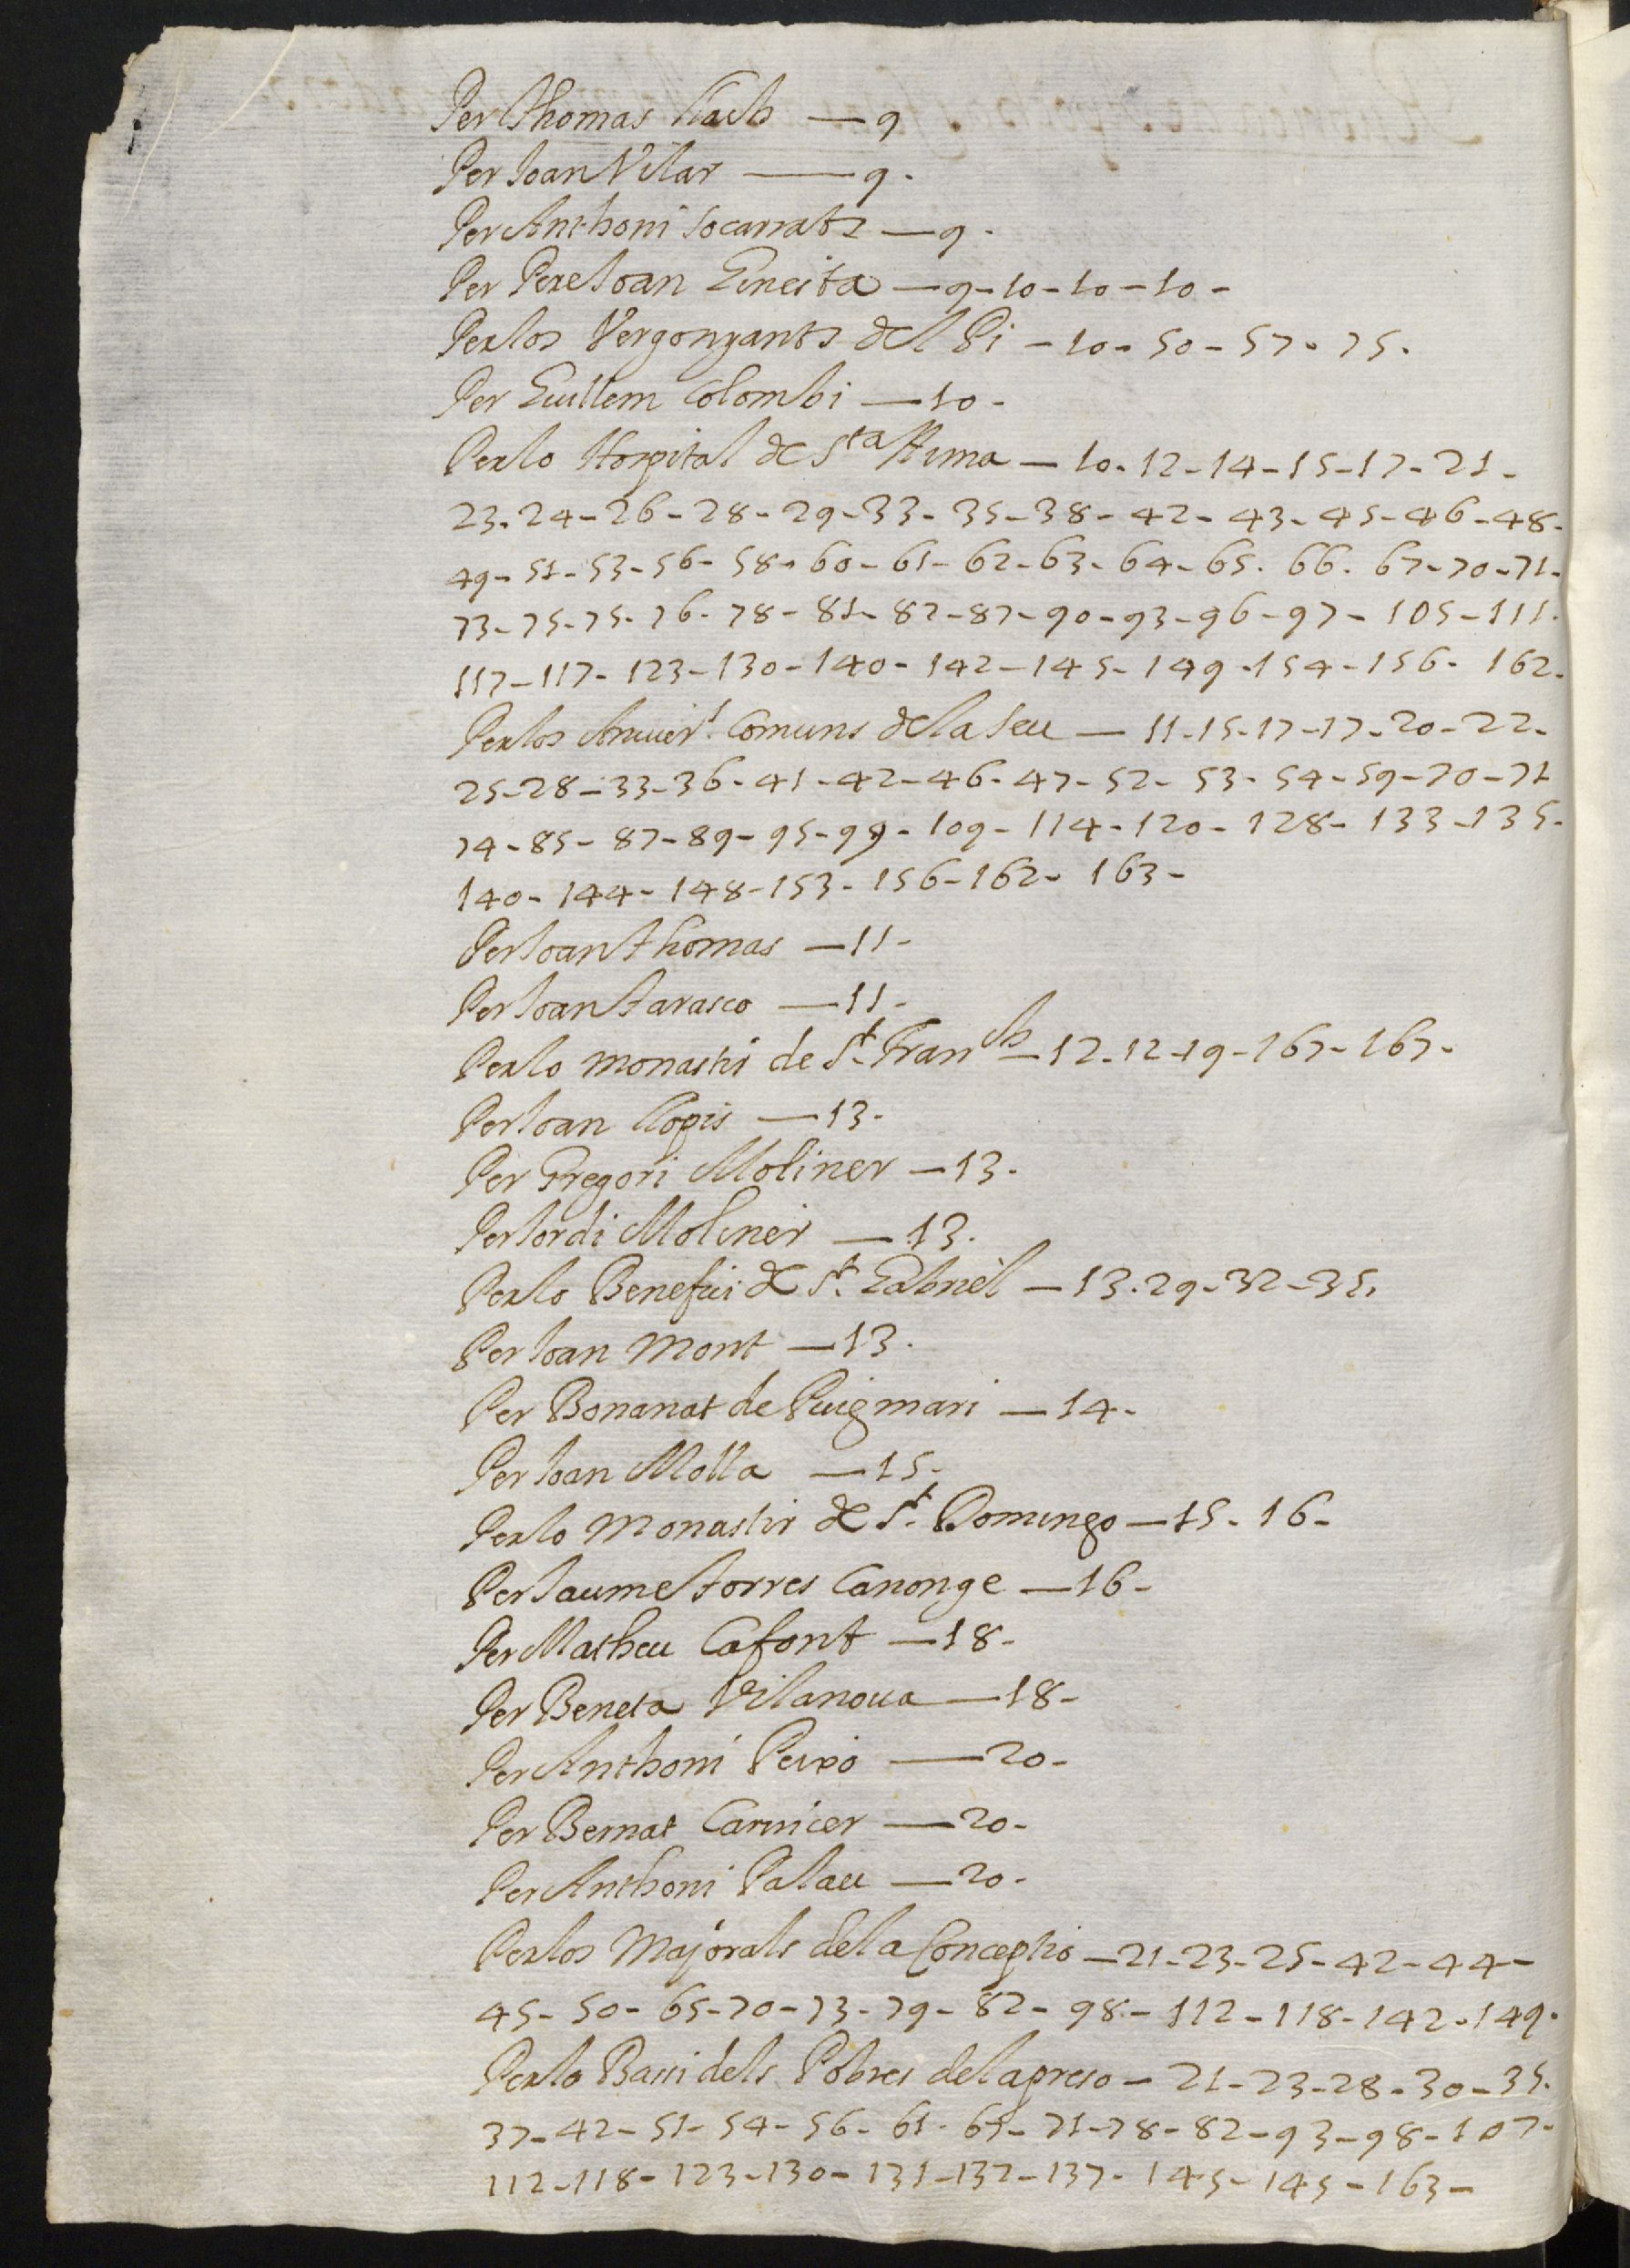 Per Thomas Llach — 9
Per Joan Vilar — 9.
Per Anthoni Socarrats — 9.
Per Pere Joan Guerita — 9 - 10 - 10 - 10 -
Per los Vergonyants del Pi - 10 - 50 - 57 - 75.
Per Guillem Colombi — 10 -
Per lo Hospital de Sta Anna — 10 - 12 - 14 - 15 - 17 - 21 -
23 - 24 - 26 - 28 - 29 - 33 - 35 - 38 - 42 - 43 - 45 - 46 - 48 -
49 - 51 - 53 - 56 - 58 - 60 - 61 - 62 - 63 - 64 - 65 . 66 . 67 - 70 - 71 -
73 - 75 - 75 - 76 - 78 - 81 - 82 - 87 - 90 - 93 - 96 - 97 - 105 - 111 .
117 - 117 - 123 - 130 - 140 - 142 - 145 - 149 - 154 - 156 - 162 -
Per los Anivers. Comuns de la Seu — 11 - 15 - 17 - 17 - 20 - 22 -
25 - 28 - 33 - 36 - 41 - 42 - 46 - 47 - 52 - 53 - 54 - 59 - 70 - 71
74 - 85 - 87 - 89 - 95 - 99 - 109 - 114 - 120 - 128 - 133 - 135 -
140 - 144 - 148 - 153 - 156 - 162 - 163 -
Per Joan Thomas — 11 -
Per Joan Tarasco — 11 -
Per lo monastir de St. Franch — 12 - 12 - 19 - 167 - 167 -
Per Joan Llopis — 13 -
Per Gregori Moliner — 13 -
Per Jordi Moliner — 13 .
Per lo Benefici de St. Gabriel — 13 . 29 - 32 - 35 .
Per Joan Mont — 13 .
Per Bonanat de Puigmari — 14 -
Per Joan Molla — 15 -
Per lo Monastir de St. Domingo — 15 - 16 -
Per Jaume Torres Canonge — 16 -
Per Matheu Cafont — 18 -
Per Beneta Vilanova — 18 -
Per Anthoni Peixo — 20 -
Per Bernat Carnicer — 20 -
Per Anthoni Palau — 20 -
Per los Majorals de la Conceptio — 21 - 23 - 25 - 42 - 44 -
45 - 50 - 65 - 70 - 73 - 79 - 82 - 98 - 112 - 118 - 142 - 149 .
Per lo Baci dels Pobres de la preso - 21 - 23 - 28 - 30 - 35 .
37 - 42 - 51 - 54 - 56 - 61 - 65 - 71 - 78 - 82 - 93 - 98 - 107 -
112 - 118 - 123 - 130 - 131 - 132 - 137 - 145 - 145 - 163 -